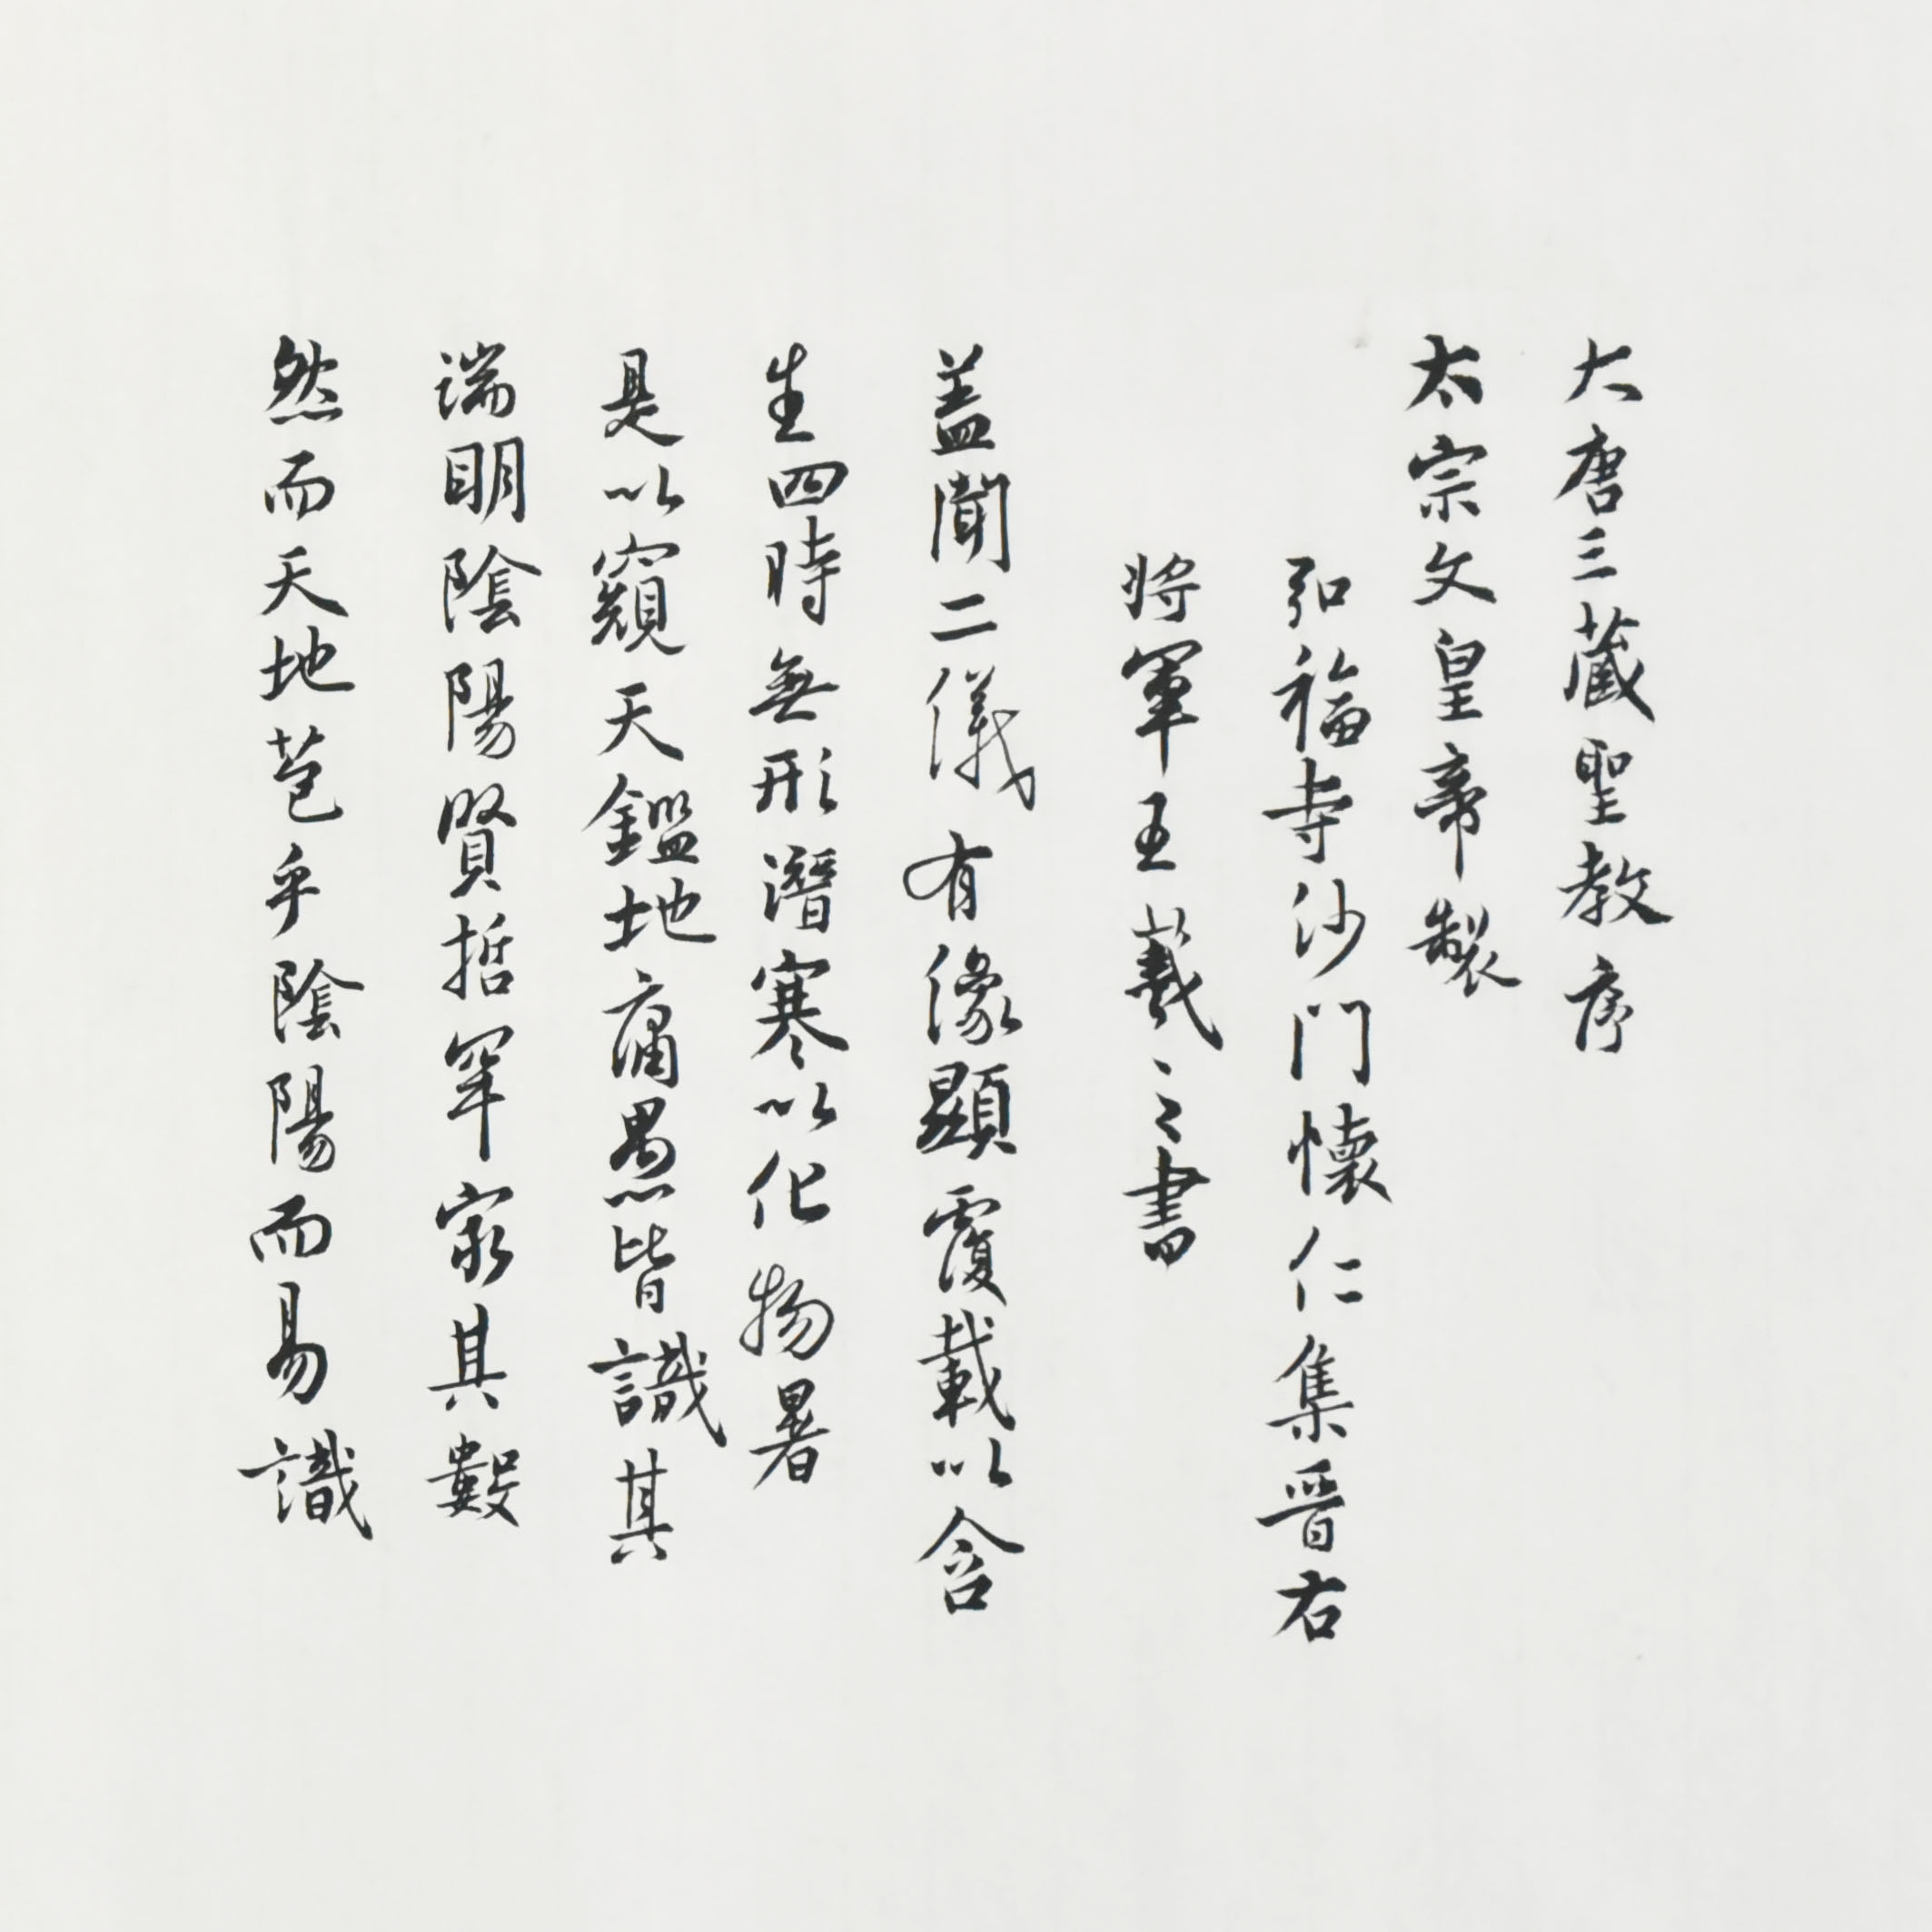 大唐三藏聖教序
太宗文皇帝製
弘福寺沙門懷仁集晉右
將軍王羲之書
蓋聞二儀有像顯覆載以含
生四時無形潛寒以化物暑
是以窺天鑑地庸愚皆識其
端明陰陽賢哲罕家其數
然而天地苞乎陰陽而易識